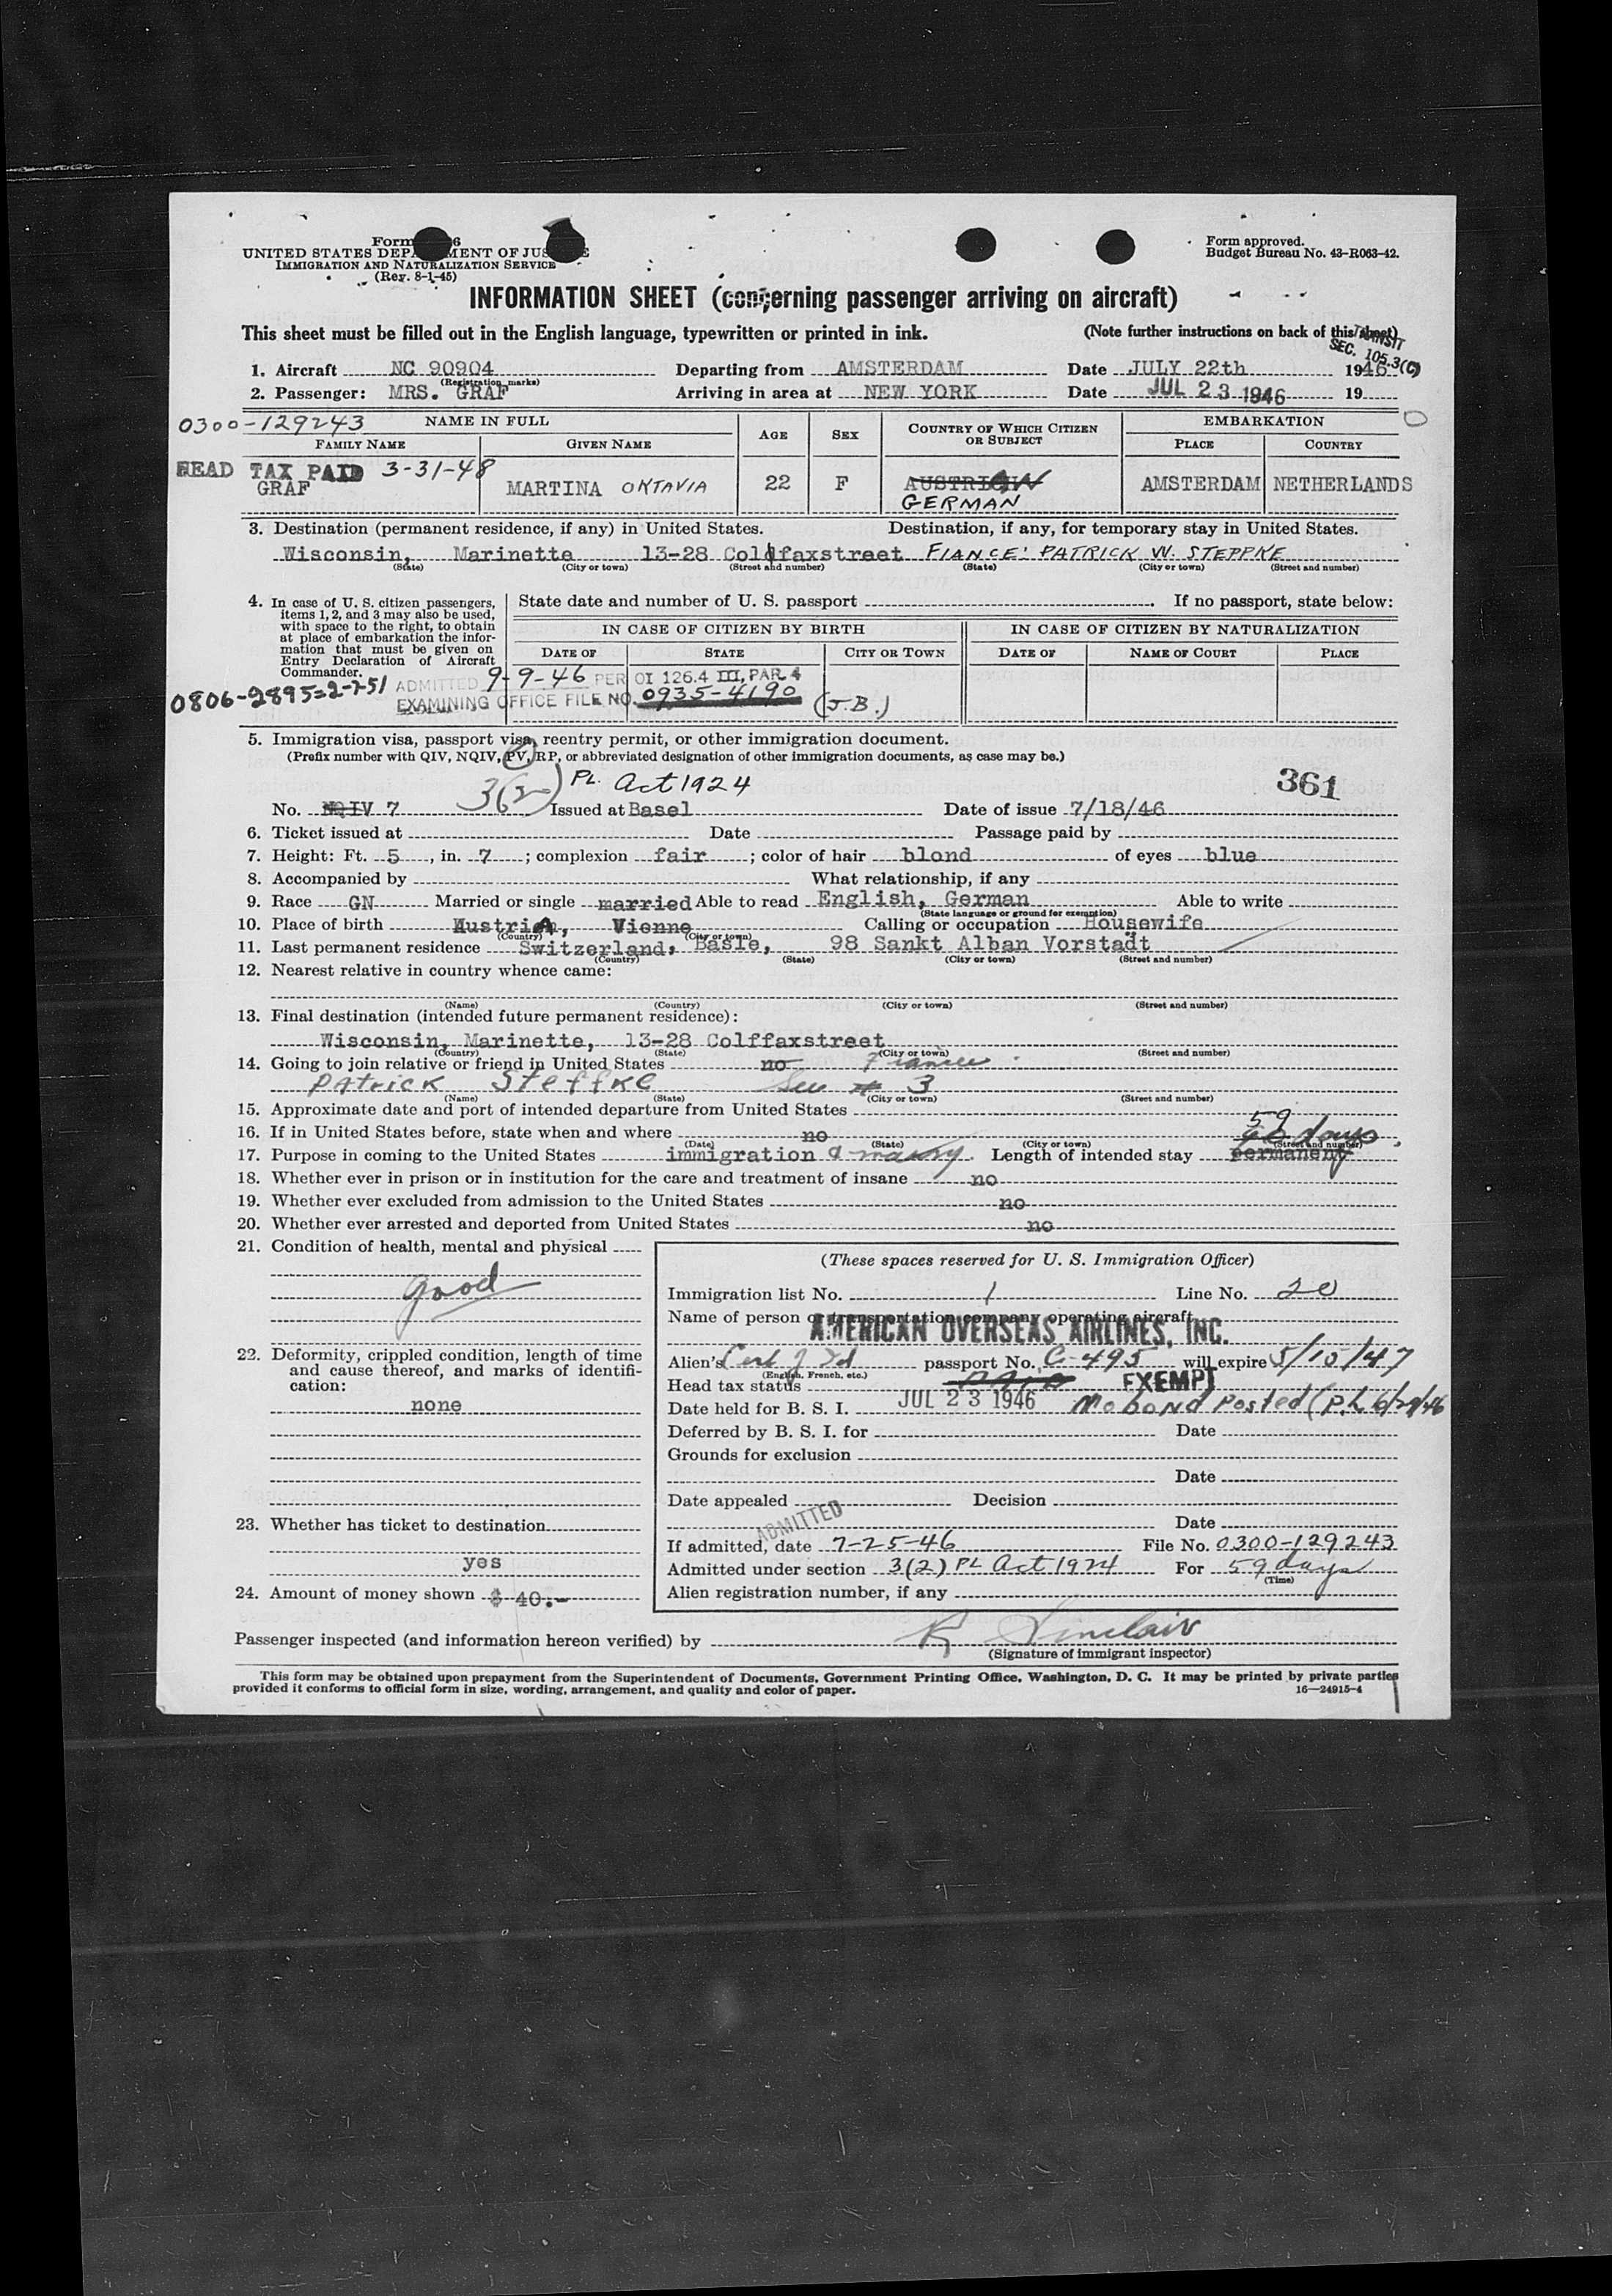 Form 6
UNITED STATES DEPARTMENT OF JUSTICE
IMMIGRATION AND NATURALIZATION SERVICE
(Rev. 8-1-45)
Form approved.
Budget Bureau No. 43-R063-42.
INFORMATION SHEET (concerning passenger arriving on aircraft)
This sheet must be filled out in the English language, typewritten or printed in ink. (Note further instructions on back of this sheet)
TRANSIT
SEC. 105.3(C)
1. Aircraft NC 90904 Departing from AMSTERDAM Date JULY 22th 1946
(Registration marks)
2. Passenger: MRS. GRAF Arriving in area at NEW YORK Date JUL 23 1946 19
0300-129243 NAME IN FULL AGE SEX COUNTRY OF WHICH CITIZEN OR SUBJECT EMBARKATION
FAMILY NAME GIVEN NAME PLACE COUNTRY
HEAD TAX PAID 3-31-48
GRAF MARTINA OKTAVIA 22 F AUSTRIAN AMSTERDAM NETHERLANDS
GERMAN
3. Destination (permanent residence, if any) in United States. Destination, if any, for temporary stay in United States.
Wisconsin, Marinette 13-28 Coldfaxstreet FIANCE: PATRICK W. STEPPKE
(State) (City or town) (Street and number) (State) (City or town) (Street and number)
4. In case of U. S. citizen passengers, items 1, 2, and 3 may also be used, with space to the right, to obtain at place of embarkation the information that must be given on Entry Declaration of Aircraft Commander.
State date and number of U. S. passport . If no passport, state below:
IN CASE OF CITIZEN BY BIRTH IN CASE OF CITIZEN BY NATURALIZATION
DATE OF STATE CITY OR TOWN DATE OF NAME OF COURT PLACE
0806-2895=2-7-51 ADMITTED 9-9-46 PER OI 126.4 III, PAR. 4
EXAMINING OFFICE FILE NO. 0935-4190 (J.B.)
5. Immigration visa, passport visa, reentry permit, or other immigration document.
(Prefix number with QIV, NQIV, PV, RP, or abbreviated designation of other immigration documents, as case may be.)
3(2) PL. Act 1924 361
No. NQIV 7 Issued at Basel Date of issue 7/18/46
6. Ticket issued at Date Passage paid by
7. Height: Ft. 5, in. 7; complexion fair; color of hair blond of eyes blue
8. Accompanied by What relationship, if any
9. Race GN Married or single married Able to read English, German Able to write
(State language or ground for exemption)
10. Place of birth Austria, Vienne Calling or occupation Housewife
(Country) (City or town)
11. Last permanent residence Switzerland, Basle, 98 Sankt Alban Vorstadt
(Country) (State) (City or town) (Street and number)
12. Nearest relative in country whence came:
(Name) (Country) (City or town) (Street and number)
13. Final destination (intended future permanent residence):
Wisconsin, Marinette, 13-28 Colffaxstreet
(Country) (State) (City or town) (Street and number)
14. Going to join relative or friend in United States no Fiance
Patrick Steffke See # 3
(Name) (State) (City or town) (Street and number)
15. Approximate date and port of intended departure from United States
16. If in United States before, state when and where no
(Date) (State) (City or town) (Street and number)
59 days
17. Purpose in coming to the United States immigration & marry. Length of intended stay permanent
18. Whether ever in prison or in institution for the care and treatment of insane no
19. Whether ever excluded from admission to the United States no
20. Whether ever arrested and deported from United States no
21. Condition of health, mental and physical
good
22. Deformity, crippled condition, length of time and cause thereof, and marks of identification:
none
23. Whether has ticket to destination
yes
24. Amount of money shown $ 40.-
(These spaces reserved for U. S. Immigration Officer)
Immigration list No. 1 Line No. 20
Name of person or transportation company operating aircraft
AMERICAN OVERSEAS AIRLINES, INC.
Alien's Cert of Id passport No. C-495 will expire 5/15/47
(English, French, etc.)
Head tax status EXEMPT
Date held for B. S. I. JUL 23 1946 No bond Posted (P.L. 6/29/46
Deferred by B. S. I. for Date
Grounds for exclusion
Date
Date appealed Decision
ADMITTED Date
If admitted, date 7-25-46 File No. 0300-129243
Admitted under section 3(2) PL Act 1924 For 59 days
(Time)
Alien registration number, if any
Passenger inspected (and information hereon verified) by R Sinclair
(Signature of immigrant inspector)
This form may be obtained upon prepayment from the Superintendent of Documents, Government Printing Office, Washington, D. C. It may be printed by private parties
provided it conforms to official form in size, wording, arrangement, and quality and color of paper. 16—24915-4